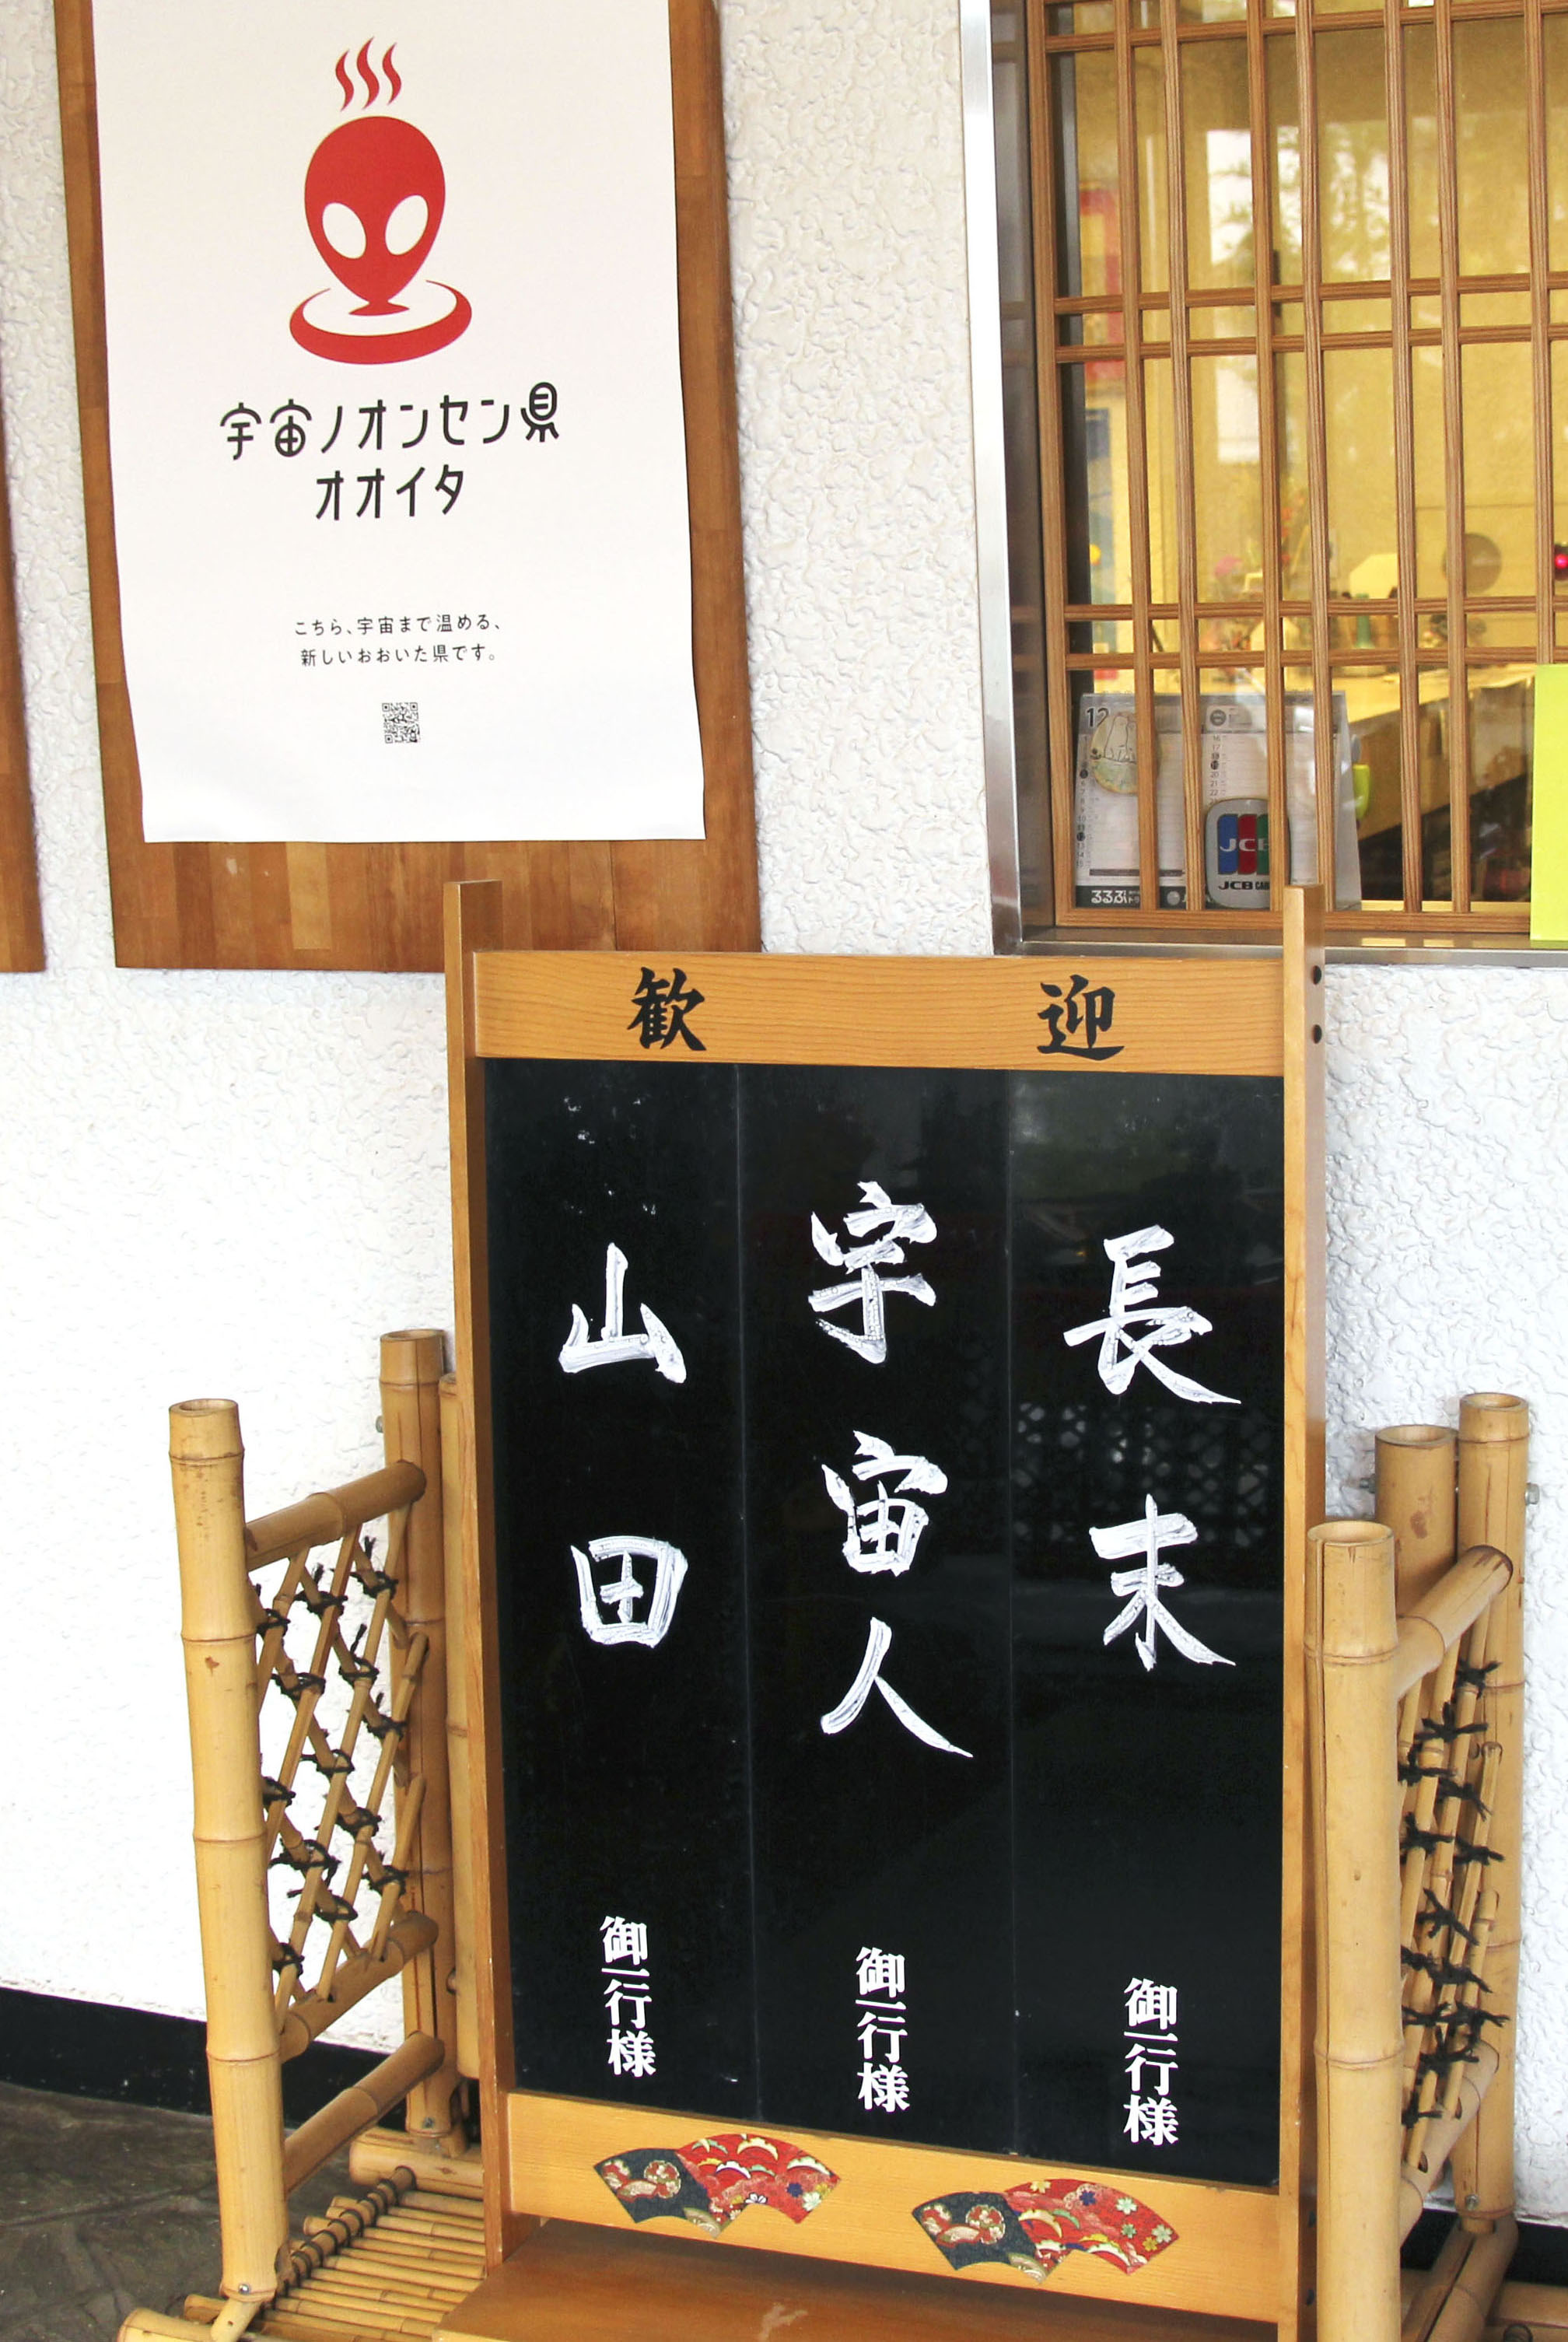 宇宙ノオンセン県
オオイタ
こちら、宇宙まで温める、
新しいおおいた県です。
12
るるぶ
JCB
JCB CARD
歓迎
長末 御一行様
宇宙人 御一行様
山田 御一行様